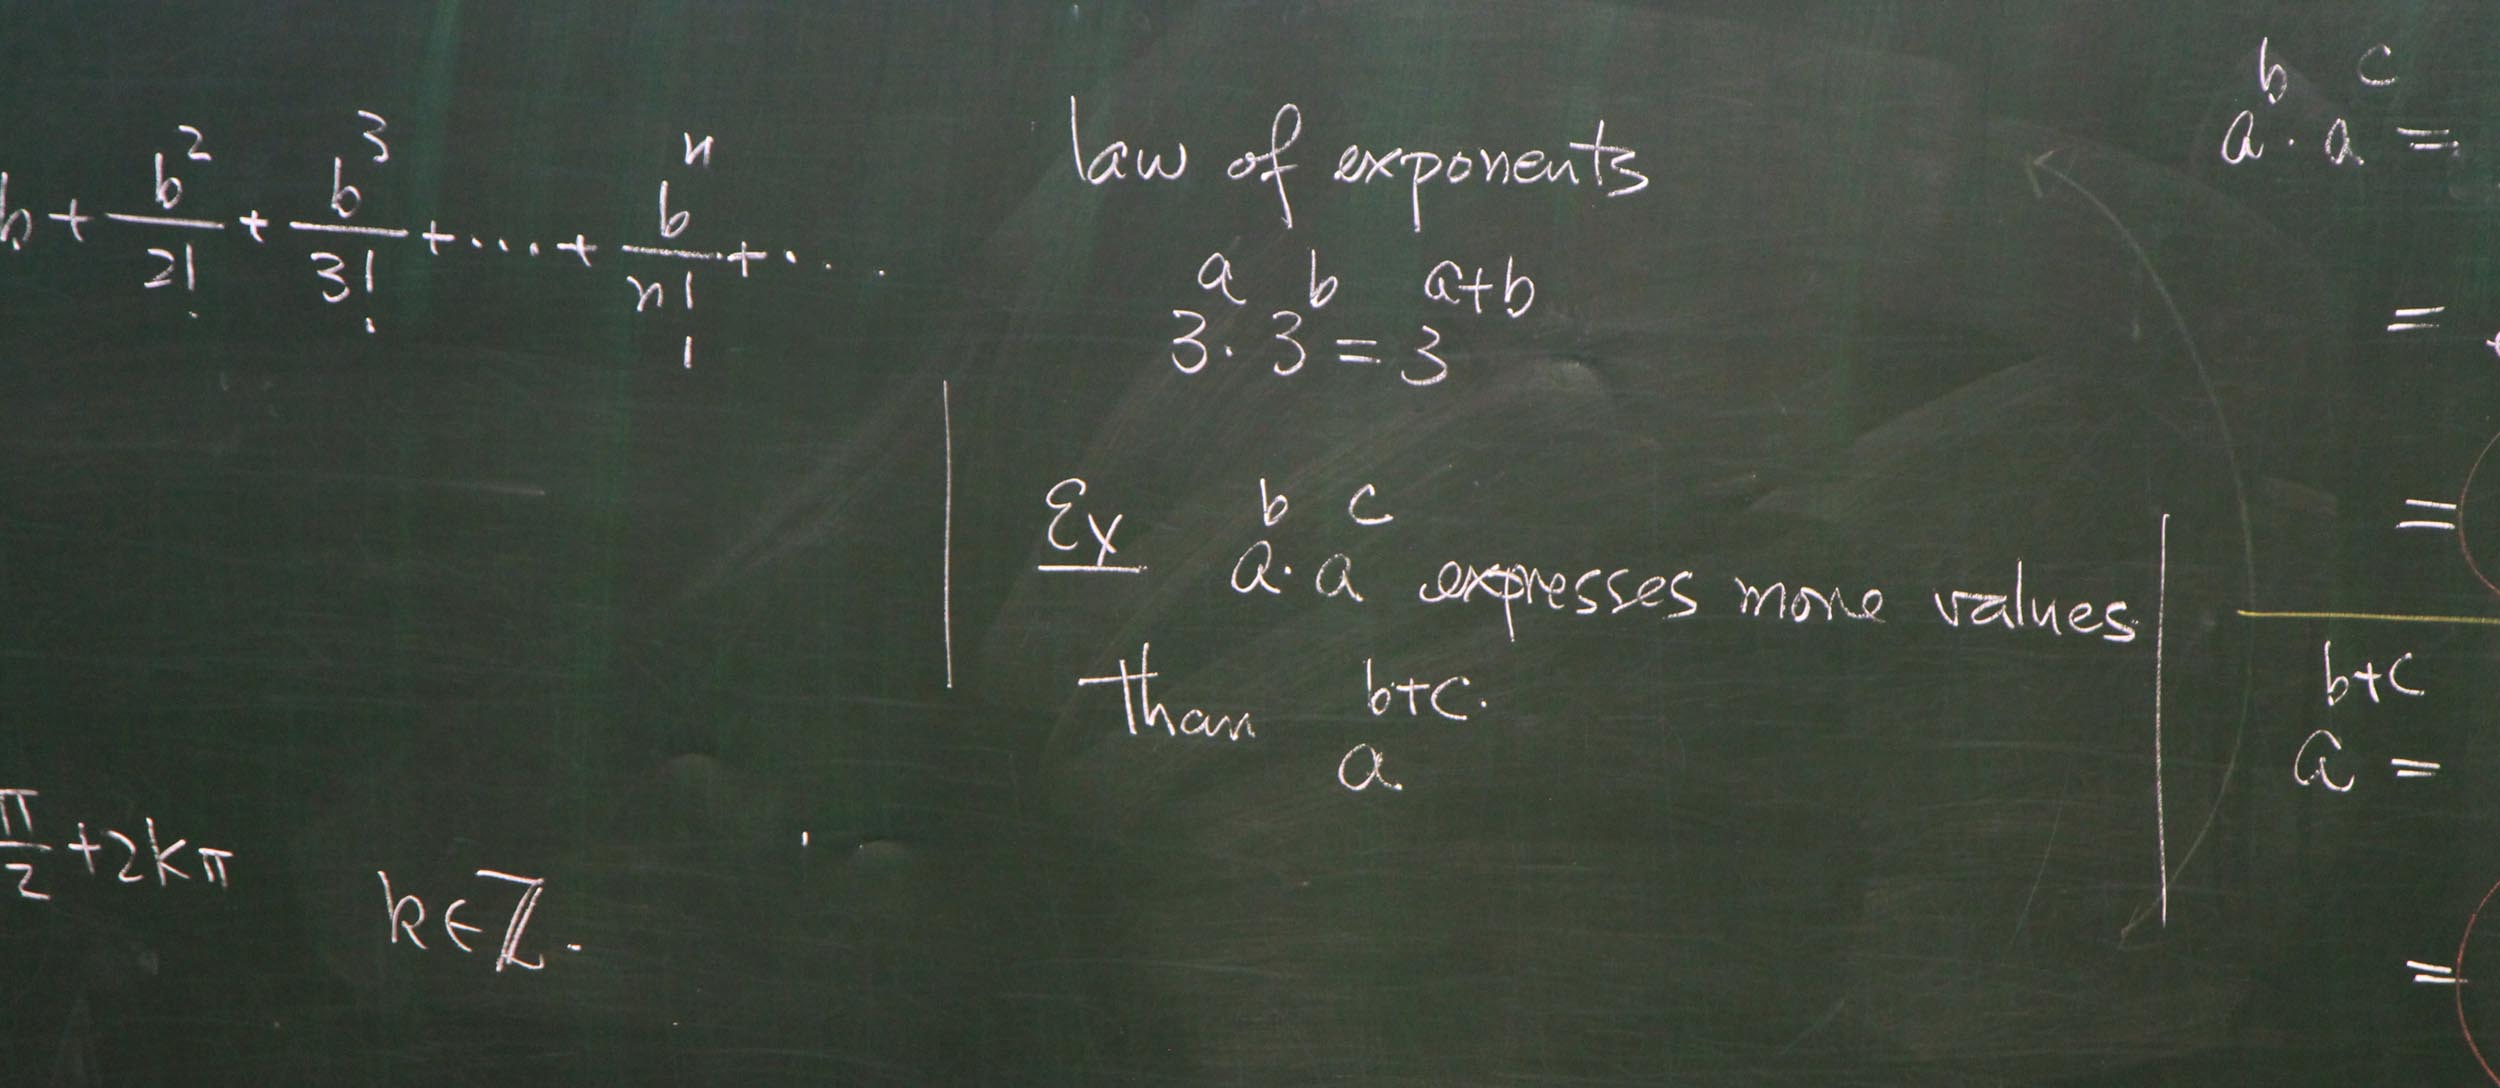 b + b²/2! + b³/3! + .... + bⁿ/n! + ....
π/2 + 2kπ
k ∈ ℤ.
law of exponents
3ᵃ · 3ᵇ = 3ᵃ⁺ᵇ
Ex aᵇ · aᶜ expresses more values
than aᵇ⁺ᶜ.
aᵇ · aᶜ =
=
=
aᵇ⁺ᶜ =
=